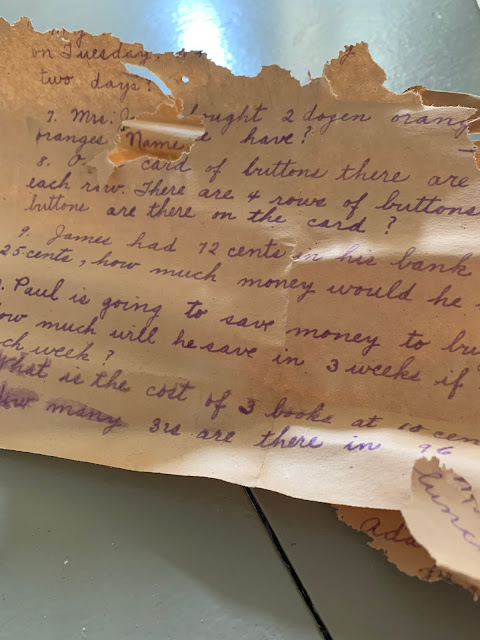 on Tuesday,
two days?
7. Mrs. bought 2 dozen orang
oranges Name have?
8. card of buttons there are
each row. There are 4 rows of buttons
buttons are there on the card?
9. James had 72 cents in his bank
25 cents, how much money would he
. Paul is going to save money to bu
ow much will he save in 3 weeks if
ch week?
What is the cost of 3 books at 10 cen
How many 3's are there in 96
lunc
Ada